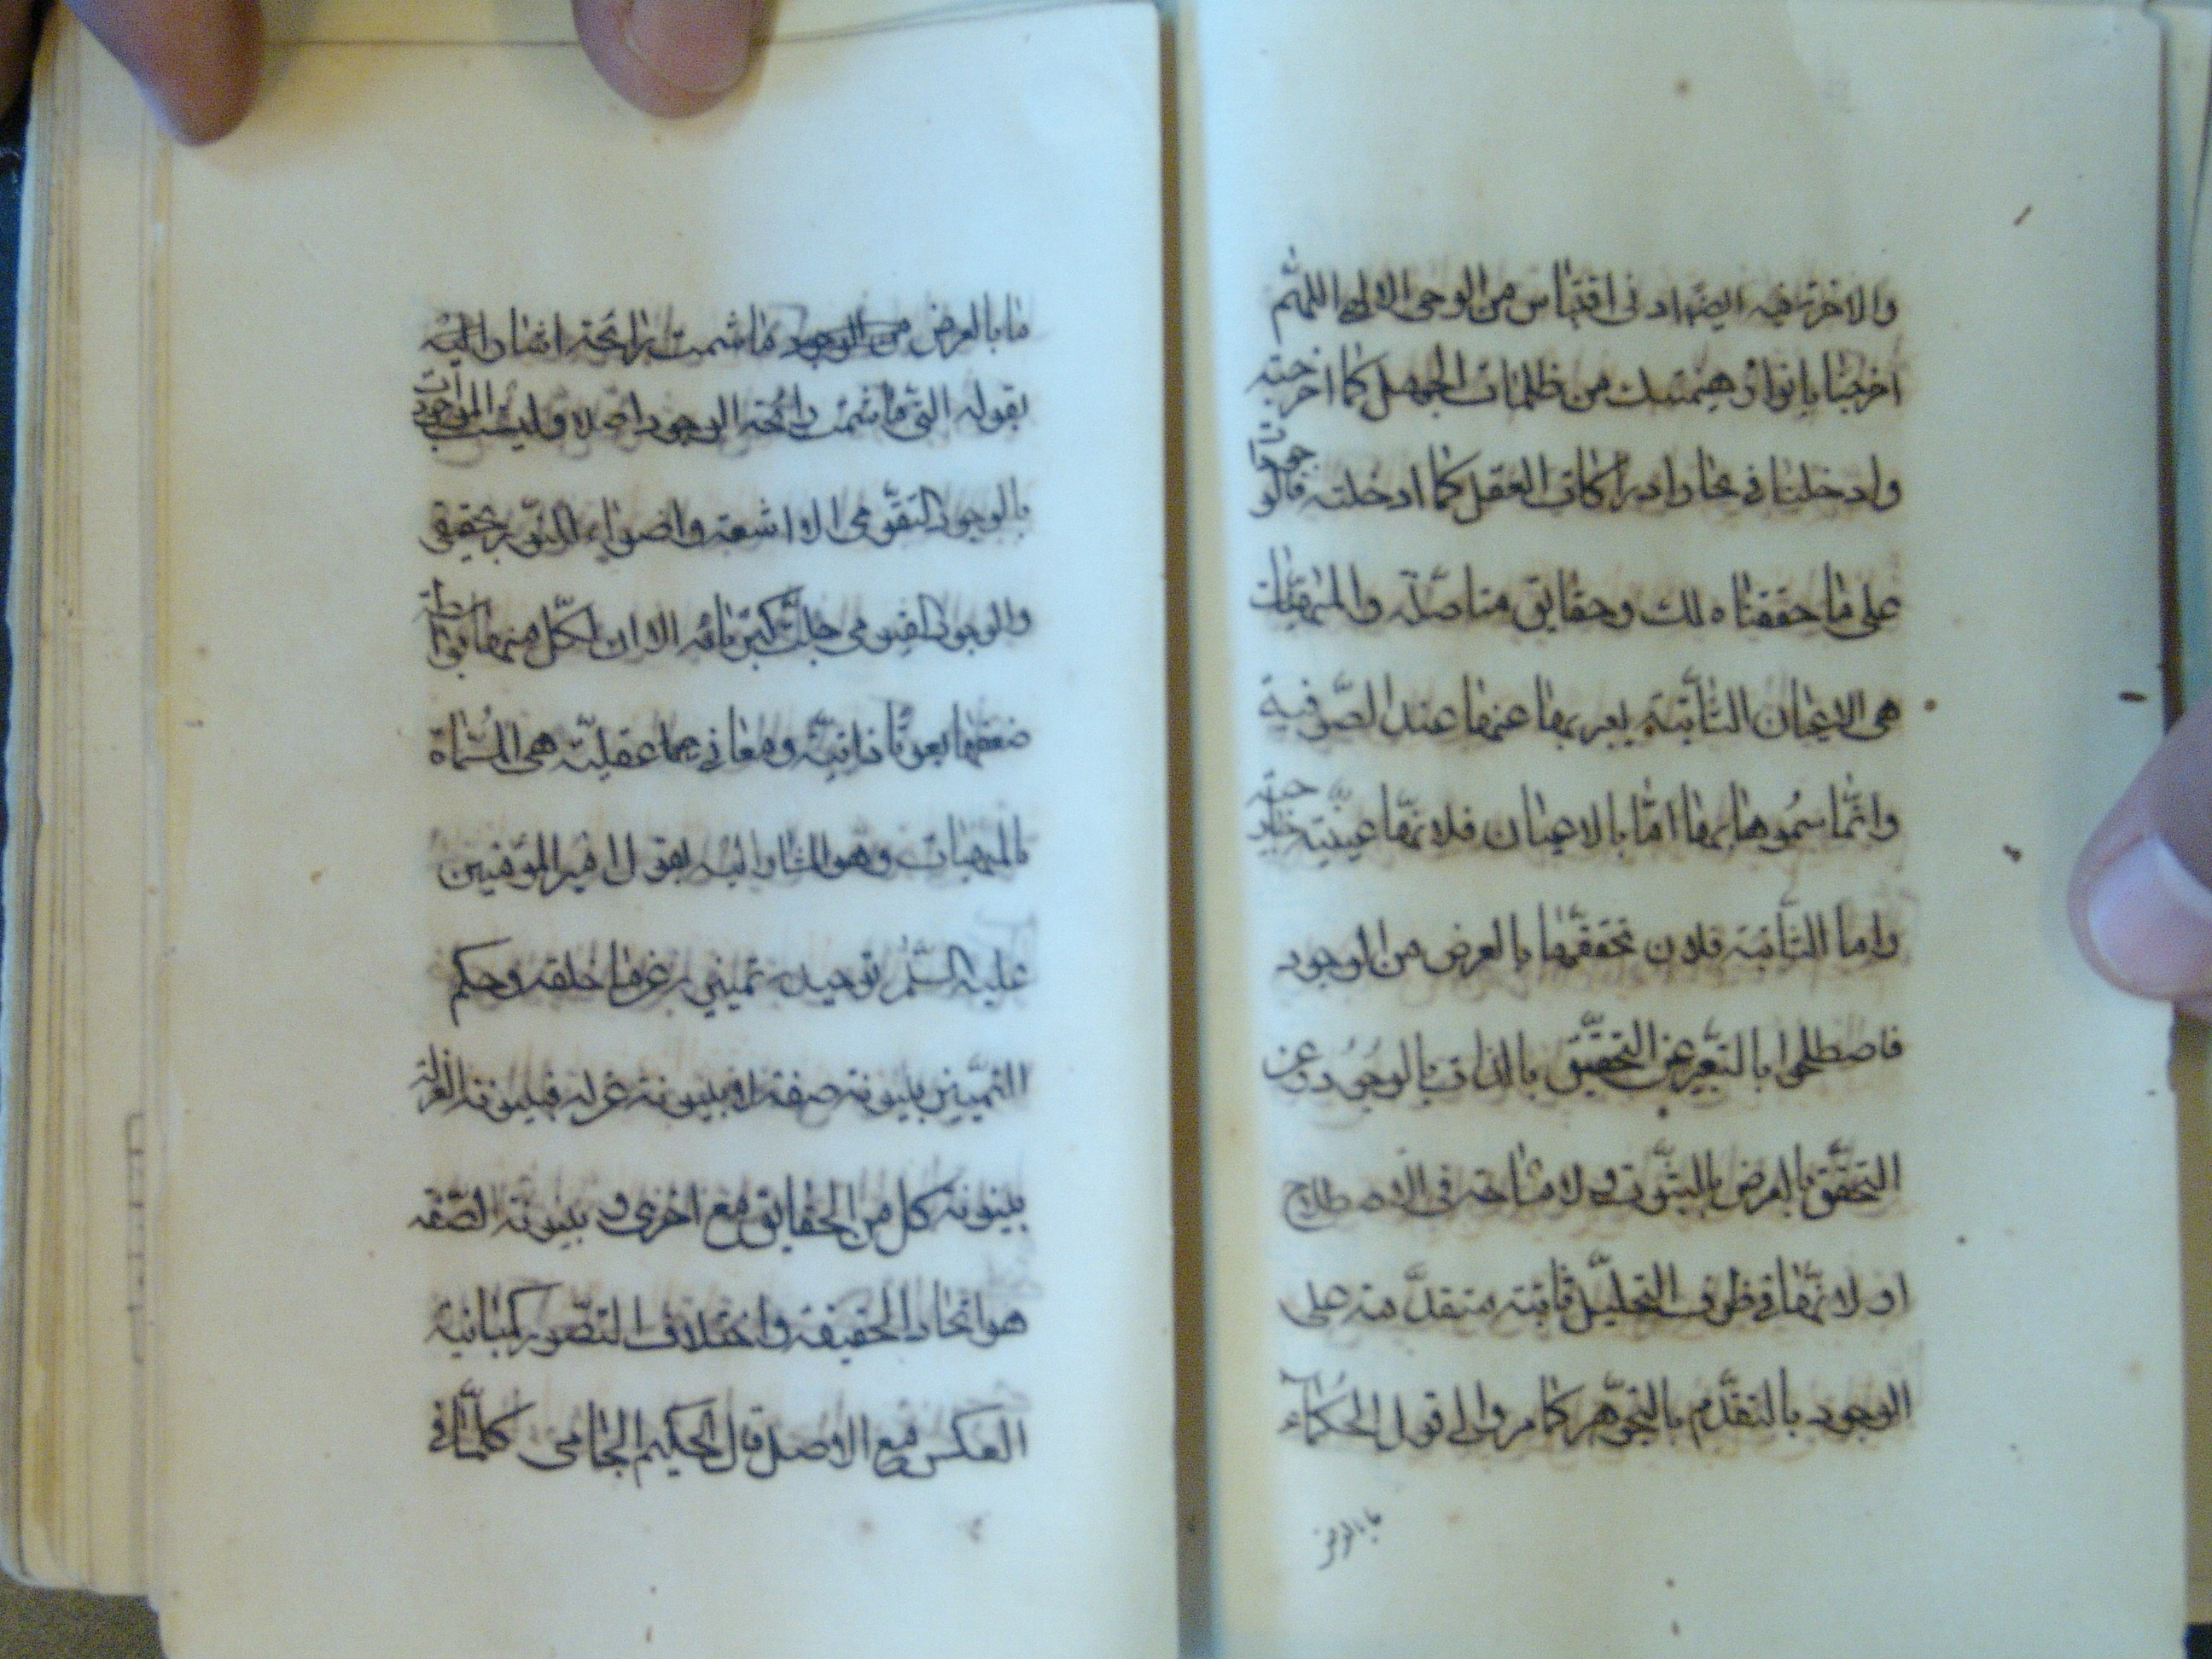 والاخرة فيه ايضا د فى اقتباس من الوحى الالهى اللهم
اخرجنا بانوار هيمنتك من ظلمات الجهل كما اخرجته
وادخلنا فى بحار ادراكات العقل كما ادخلته فالوجودات
على ما حققناه لك وحقايق متاصلة والمهيات
هى الاعيان الثابتة يعبر بها عنها عند الصوفية
وانما سموها بها اما بالاعيان فلانها عينية
واما الثابتة فلان تحققها بالعرض من الوجود
فاصطلحوا بالتعبير عن التحقيق بالذات بالوجود وعن
التحقق بالعرض بالثبوت ولا مشاحة فى الاصطلاح
او لانها فى ظرف التحليل ثابتة متقدمة على
الوجود بالتقدم بالتجوهر كما مر والى قول الحكماء
ما بالعرض
ما بالعرض من الوجود ما شمت رايحة اشار اليه
بقوله التى ما شمت رائحة الوجود اصلا وليست الموجودات
بالوجود التقومى الا اشعة واضواء للنور الحقيقى
والوجود القيومى جلت كبريائه الا ان لكل منها بواسطة
ضعفها نعوتا ذاتية ومعانى عقلية هى المسماة
بالمهيات وهو المشار اليه بقول امير المؤمنين
عليه السلم توحيده تمييزه عن خلقه وحكم
التمييز بينونة صفة لا بينونة عزلة فبينونة العزلة
بينونة كل من الحقايق مع اخرى و بينونة الصفة
هو اتحاد الحقيقة واختلاف التصور كمباينة
العكس مع الاصل قال الحكيم الجامى كلما فى